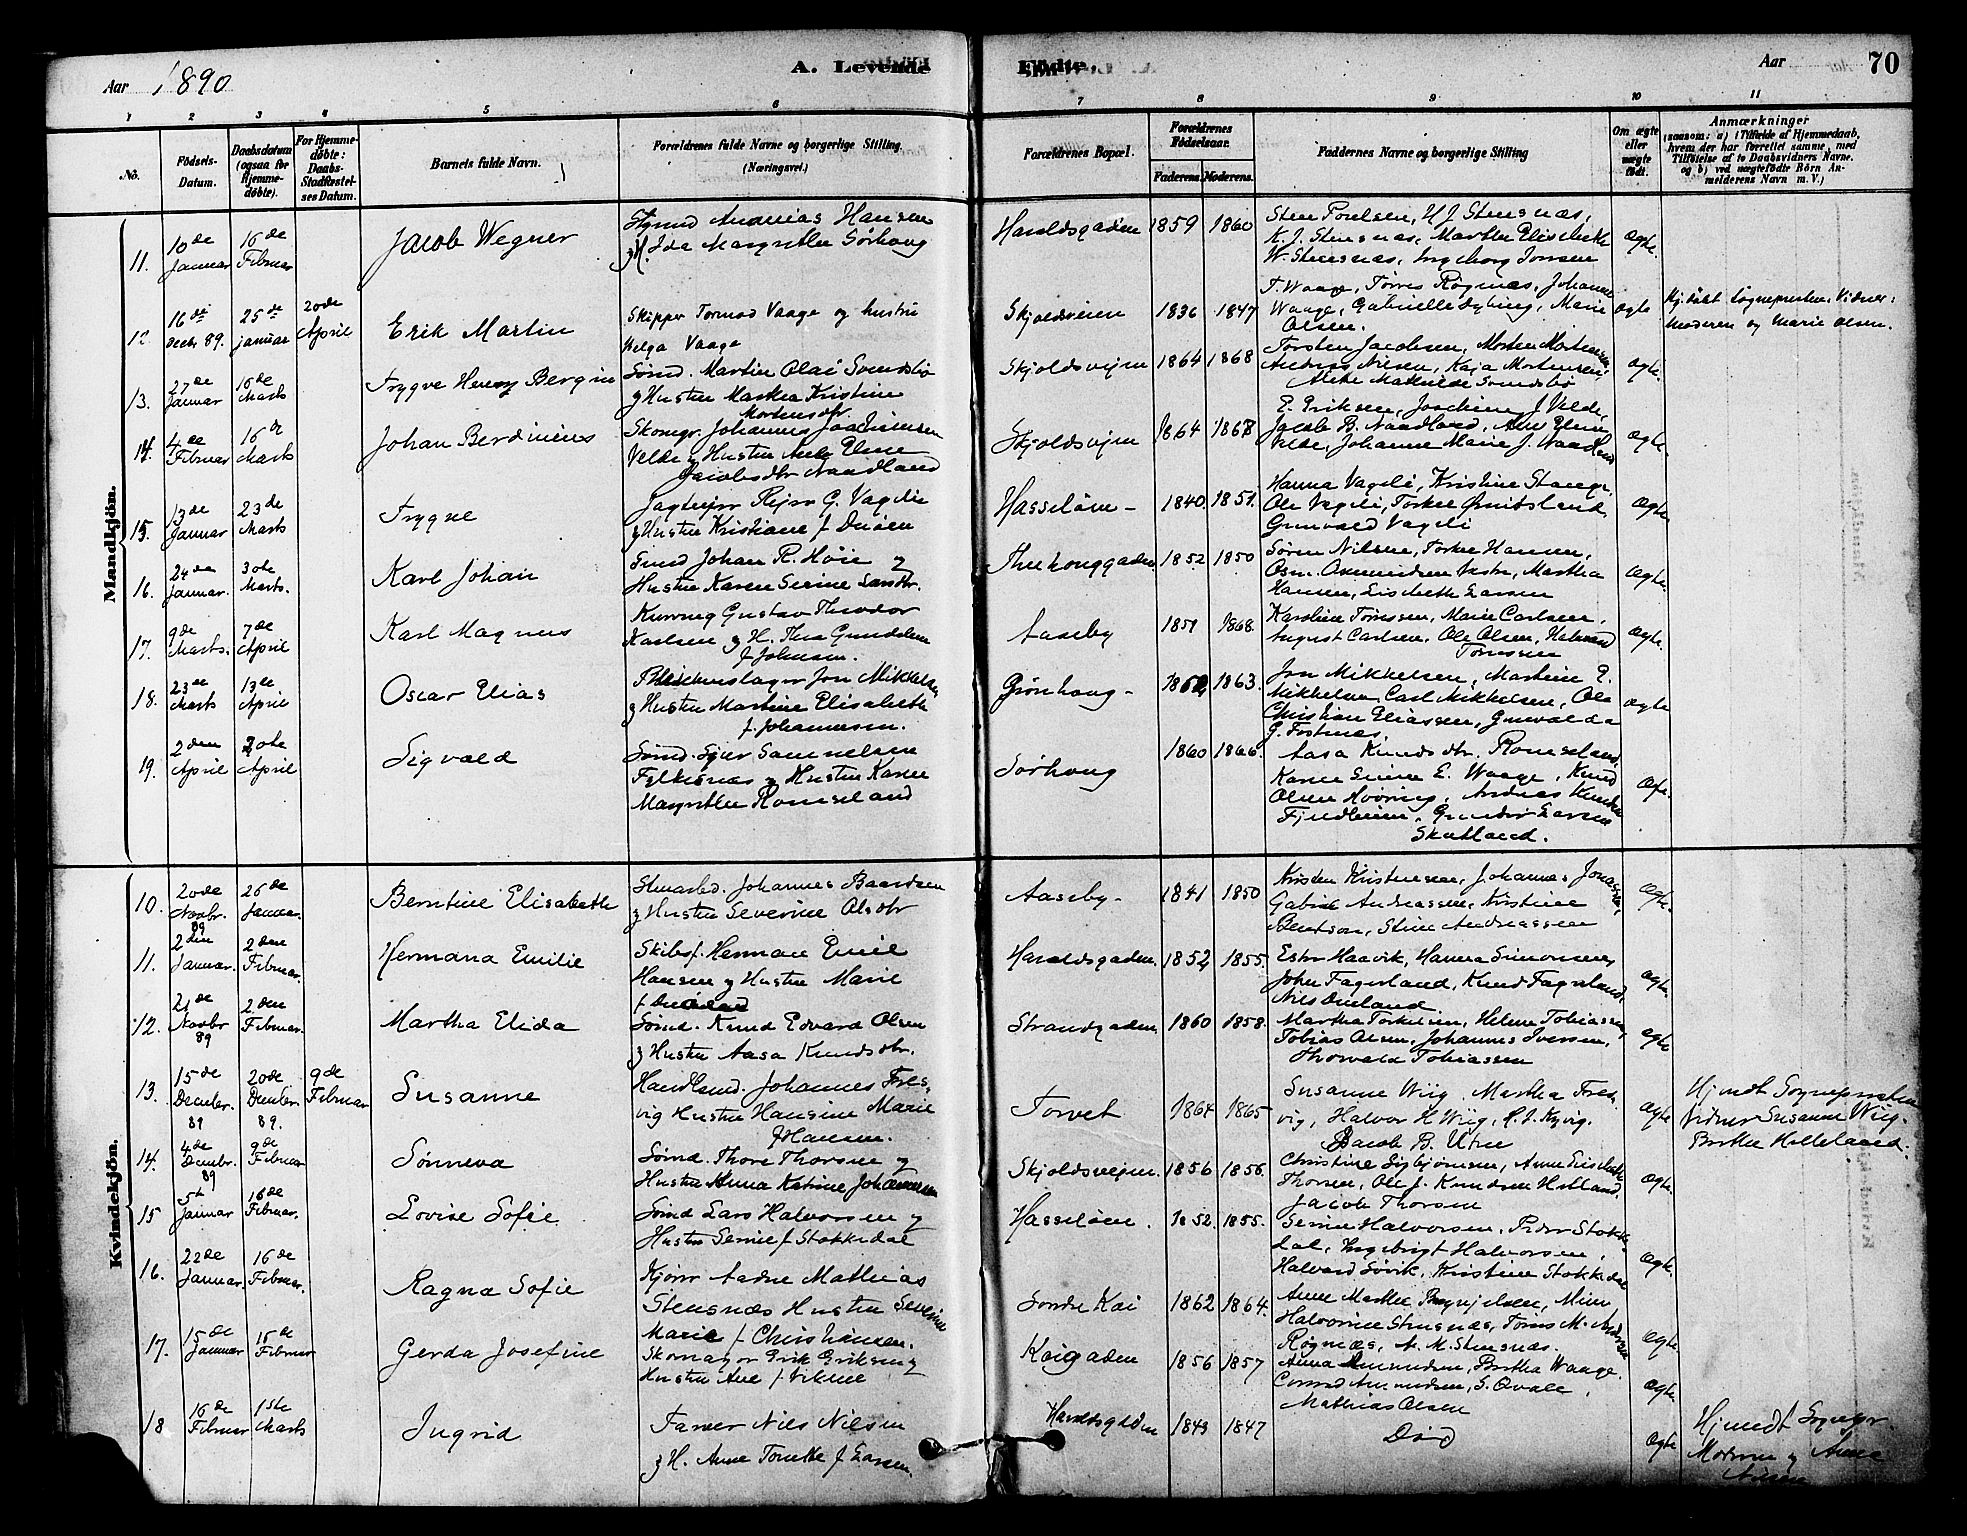 Aar 1890
A. Levende Födte.
Aar
70
1 2 3 4 5 6 7 8 9 10 11
No.
Födsels-Datum.
Daabsdatum (ogsaa for Hjemme-döbte).
For Hjemme-döbte: Daabs-Stadfæstel-ses Datum.
Barnets fulde Navn.
Forældrenes fulde Navne og borgerlige Stilling. (Næringsvei.)
Forældrenes Bopæl.
Forældrenes Födselsaar.
Faderens. Moderens.
Faddernes Navne og borgerlige Stilling
Om ægte eller uægte födt.
Anmærkninger
(saasom: a) i Tilfælde af Hjemmedaab,
hvem der har forrettet samme, med
Tilföielse af to Daabsvidners Navne.
og b) ved uægtefödte Börn An-
melderens Navn m. V.)
Mandkjön.
11. 10de Januar 16de Februar Jacob Wegner
Ananias Hansen
Ida Margrethe Sørhoug
Haraldsgaden 1859 1860
Sten Poulsen, H J Stensnæs,
K. J. Stensnæs, Marthe Elisabeth
W. Stensnæs, Ingeborg Jonsen
Ægte.
12. 16de Decbr 89. 25de januar 20de April Erik Martin
Skipper Tormod Vaage og hustru
Helga Vaage
Skjoldsveien 1836 1847
T. Waage, Tørres Røgnæs, Johanne
Waage, Gabrielle Dybing, Marie
Olsen.
ægte
Hj.døbt Sognepresten. Vidner:
Moderen og Marie Olsen.
13. 27de Januar 16de Marts Trygve Henry Bergin
Sømd. Martin Olai Svendsbø
og Hustru Marthea Kristine
Mortensdtr.
Skjoldsvejen 1864 1868
Torsten Jacobsen, Morten Mortensen,
Andreas Nilsen, Kaja Mortensen,
Mathilde Svendsbø
ægte.
14. 4de Februar 16de Marts Johan Berdinius
Skomgr. Johannes Joachimsen
Velde og Hustru Ane Elene
Jacobsdtr Naadland
Skjoldsvejen 1864 1868
E. Eriksen, Joachim J Velde,
Jacob B. Naadland, Ane Elene
Velde, Johanne Marie J. Naadland
ægte.
15. 13de Januar 23de Marts Trygve
Rejer G. Vageli
og Hustru Kristiane f.
Hasseløen - 1840 1851.
Hanna Vageli, Kristine Stange,
Ole Vageli, Torkel Ørnitsland,
Gunvald Vageli
Ægte.
16. 24de Januar. 30te Marts. Karl Johan
Smed Johan R. Høie og
Hustru Karen Serine Larsdtr.
1852 1850
Søren Nilsen, Torkel Hansen,
Martha
Hansen, Lisebeth Larsen
Ægte.
17. 9de Marts. 7de April Karl Magnus
Gustav Theodor
Karlsen og H. Thea Gundelene
f Johnsen.
Aaseby 1851 1868.
Karoline Tønnesen, Marie Carlsen,
August Carlsen, Ole Olsen, Halvard
Tønnessen
Ægte.
18. 23de Marts 13de April Oscar Elias
Blikkenslager Jon Mikkelsen
og Hustru Martine Elisabeth
f. Johannesen.
Grønhoug - 1862 1863.
Jon Mikkelsen, Martine E.
Mikkelsen, Carl Mikkelsen, Ole
Christian Eliassen, Gunvalda
G. Fostnæs.
ægte
19. 2den April 20de April Sigvald
Sømd. Sjur Samuelsen
og Hustru Karen
Margrethe Romseland
Sørhoug 1860 1866.
Aasa Knudsdtr. Romseland,
Karen Serine E. Waage, Knud
Olsen Høvring, Andreas Knudsen
Larsen
Skatland.
Ægte.
Kvindekjön.
10. 20de Novbr. 89 26de Januar. Berntine Elisabeth
Johannes Baardsen
og Hustru Severine Olsdtr
Aaseby - 1841 1850
Kristen Kristensen, Johannes Jonassen,
Gabriel Andreassen, Kristine
Bentson, Stine Andreassen
ægte.
11. 2den Januar. 2den Februar. Hermana Emilie
Skibsf. Herman Emil
Hansen og Hustru Marie
Haraldsgaden. 1852 1855.
Ester Haavik, Hanna Simonsen,
John Fagerland, Knud Fagerland,
Nils
ægte.
12. 21de Novbr 89 2den Februar. Martha Elida
Sømd. Knud Edvard Olsen
og Hustru Aasa Knudsdtr.
Strandgaden 1860 1858.
Martha Torkelsen, Helene Tobiassen,
Tobias Olsen, Johannes Iversen,
Thorvald Tobiassen
ægte
13. 15de December 89 20de December 89. 9de Februar Susanne
Handlsmd. Johannes Fres-
vig Hustru Hansine Marie
f Hansen.
Torvet 1864 1865
Susanne Wiig. Martha Fres-
vig, Halvor H Wiig, R. J. Kyvig.
Jacob B. Utne
ægte
Hjmdt Sognepresten
Vidner Susanne Wiig.
Birthe Helleland.
14. 4de Decmbr. 89 9de Februar Sønneva
Sømd. Thore Thorsen og
Hustru Anna Katrine Johannesen
Skjoldsvejen. 1856 1856.
Christine Sigbjørnsen, Anne Lisebeth
Thorsen, Ole J. Knudsen Hetland,
Jacob Thorsen
ægte.
15 5te Januar 16de Februar. Lovise Sofie
Sømd Lars Halvorsen og
Hustru Serine f Stokkedal
Hasseløen. 1852. 1855.
Serine Halvorsen, Peder Stokke-
dal, Ingebrigt Halvorsen,
Halvard Søvik, Kristine Stokkedal
ægte.
16. 22de Januar. 16de Februar. Ragna Sofie
Kjøbm Aadne Mathias
Stensnæs Hustru Severine
Marie f. Christiansen.
Søndre Kai 1862 1864.
Anne Marthe
Halvorine Stensnæs, Tønnes M. Andersen
Røgnæs, A. M. Stensnæs.
ægte
17. 15de Januar 16de Februar Gerda Josefine
Skomager Erik Eriksen og
Hustru Ane f. Vikene
Kaigaden 1856 1857
Anna Amundsen, Birtha Waage
Conrad Amundsen, S. Qvale,
Mathias Olsen
ægte
18 16de Februar 1ste Marts Ingrid
Farver Nils Nilsen
og H. Anne Tomette f Larsen.
Haraldsgaden 1843 1847
Død
ægte
Hjmdt Sognepr
Moderen og Anne